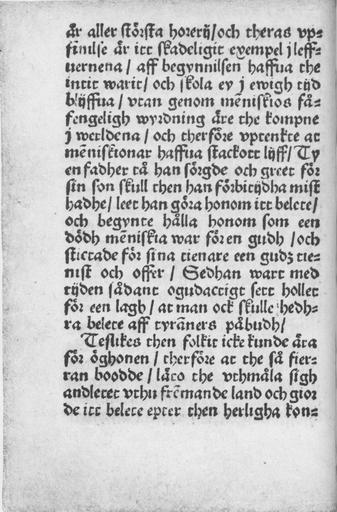 är aller största horerij/och theras vp-
finilse är itt skadeligit exempel j leff-
uernena / aff begynnilsen haffua the
intit warit/ och skola ey j ewigh tijd
blijffua / vtan genom mēniskios få-
fengeligh wyrdning äre the kompne
j werldena / och therföre vptenkte at
mēniskionar haffua stackott lijff/ Ty
en fadher tå han sörgde och greet för
sin son skull then han förbittijdha mist
hadhe/ leet han göra honom itt belete/
och begynte hålla honom som een
dödh mēniskia war för en gudh /och
stictade för sina tienare een gudz tie-
nist och offer / Sedhan wart med
tijden sådant ogudactigt sett hollet
för een lagh / at man ock skulle hedh-
ra belete aff tyrāners påbudh/
Teslikes then folkit icke kunde ära
för öghonen / therföre at the så fier-
ran boodde / läto the vthmåla sigh
andletet vthu frēmande land och gior
de itt belete epter then herligha kon-